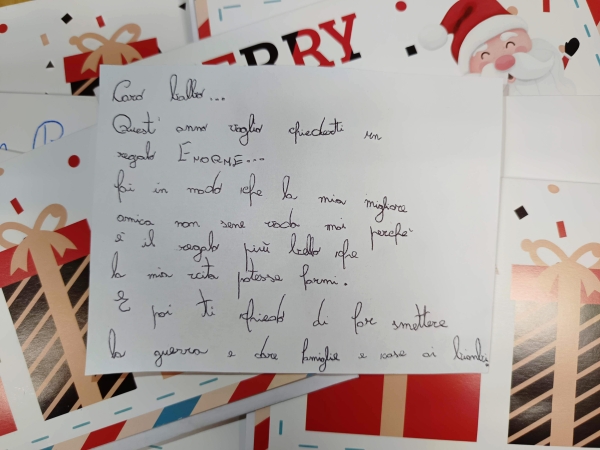 ERRY
Caro babbo...
Quest' anno voglio chiederti un
regalo ENORME...
fai in modo che la mia migliore
amica non sene vada mai perché
è il regalo più bello che
la mia vita potesse farmi.
E poi ti chiedo di far smettere
la guerra e dare famiglie e case ai bimbi.